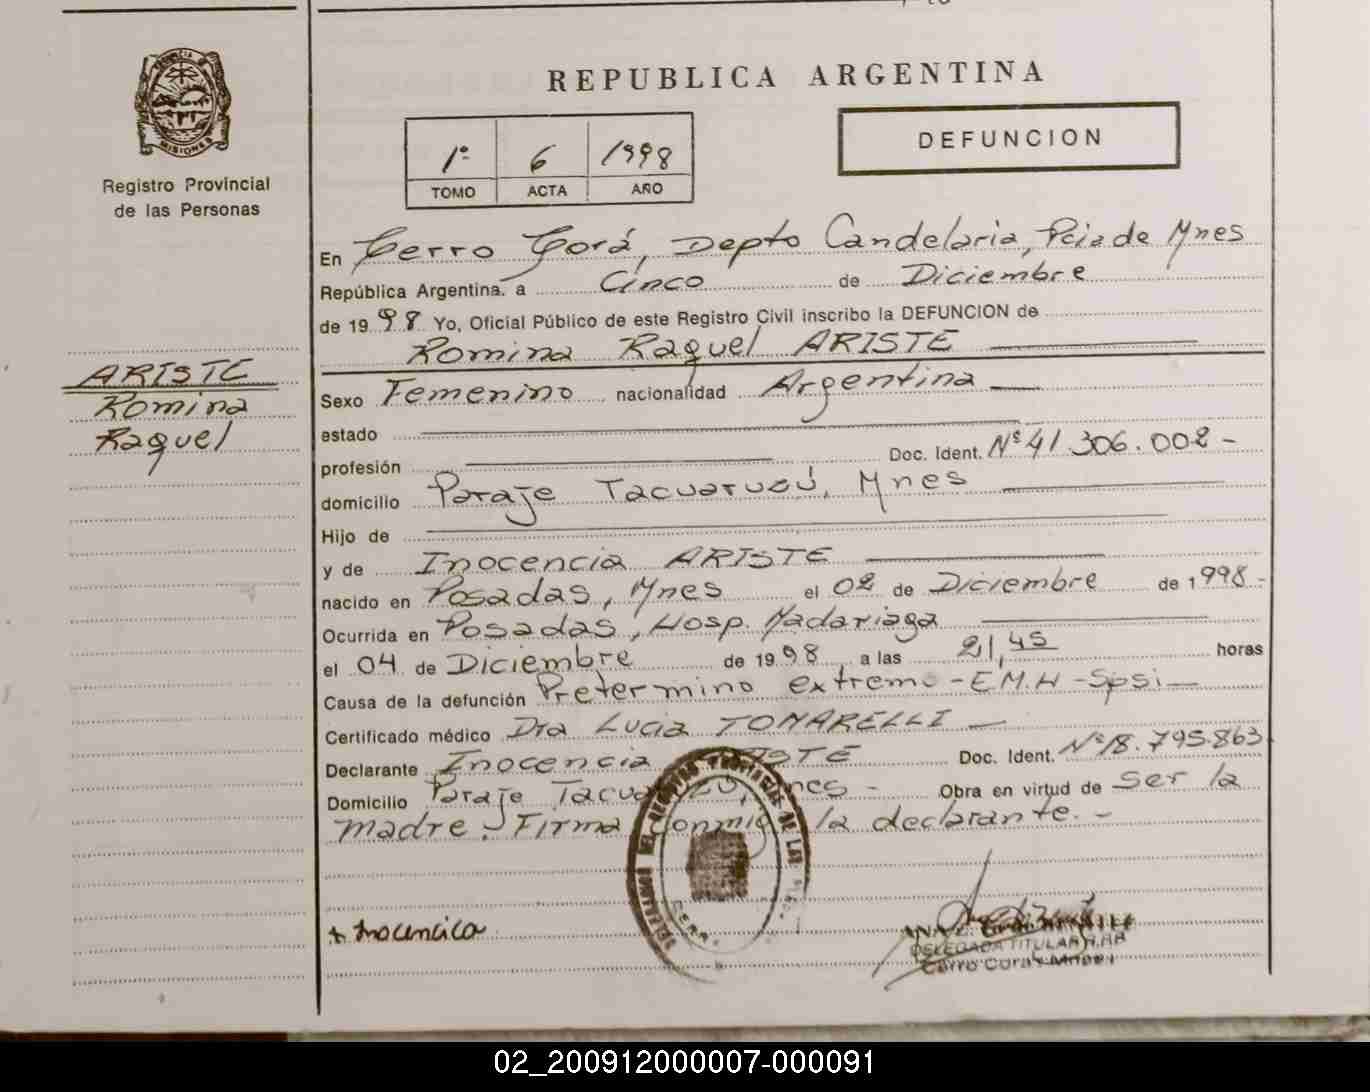 REPUBLICA ARGENTINA
MISIONES
Registro Provincial
de las Personas
1º 6 1998
TOMO ACTA AÑO
DEFUNCION
ARISTE
Romina
Raquel
En Cerro Corá, Depto Candelaria, Pcia de Mnes
República Argentina. a Cinco de Diciembre
de 1998 Yo, Oficial Público de este Registro Civil inscribo la DEFUNCION de
Romina Raquel ARISTE
Sexo Femenino nacionalidad Argentina
estado
profesión Doc. Ident. Nº 41.306.002-
domicilio Paraje Tacuaruzú, Mnes
Hijo de
y de Inocencia ARISTE
nacido en Posadas, Mnes el 02 de Diciembre de 1998-
Ocurrida en Posadas, Hosp. Madariaga
el 04 de Diciembre de 1998 a las 21,45 horas
Causa de la defunción Pretermino extremo - E.M.H - Spsi
Certificado médico Dra Lucia TOMARELLI
Declarante Inocencia ARISTE Doc. Ident. Nº 18.795.863
Domicilio Paraje Tacuaruzú, Mnes - Obra en virtud de Ser la
madre. Firma conmigo la declarante.-
Inocencica
DELEGADA TITULAR
Cerro Corá
02_200912000007-000091